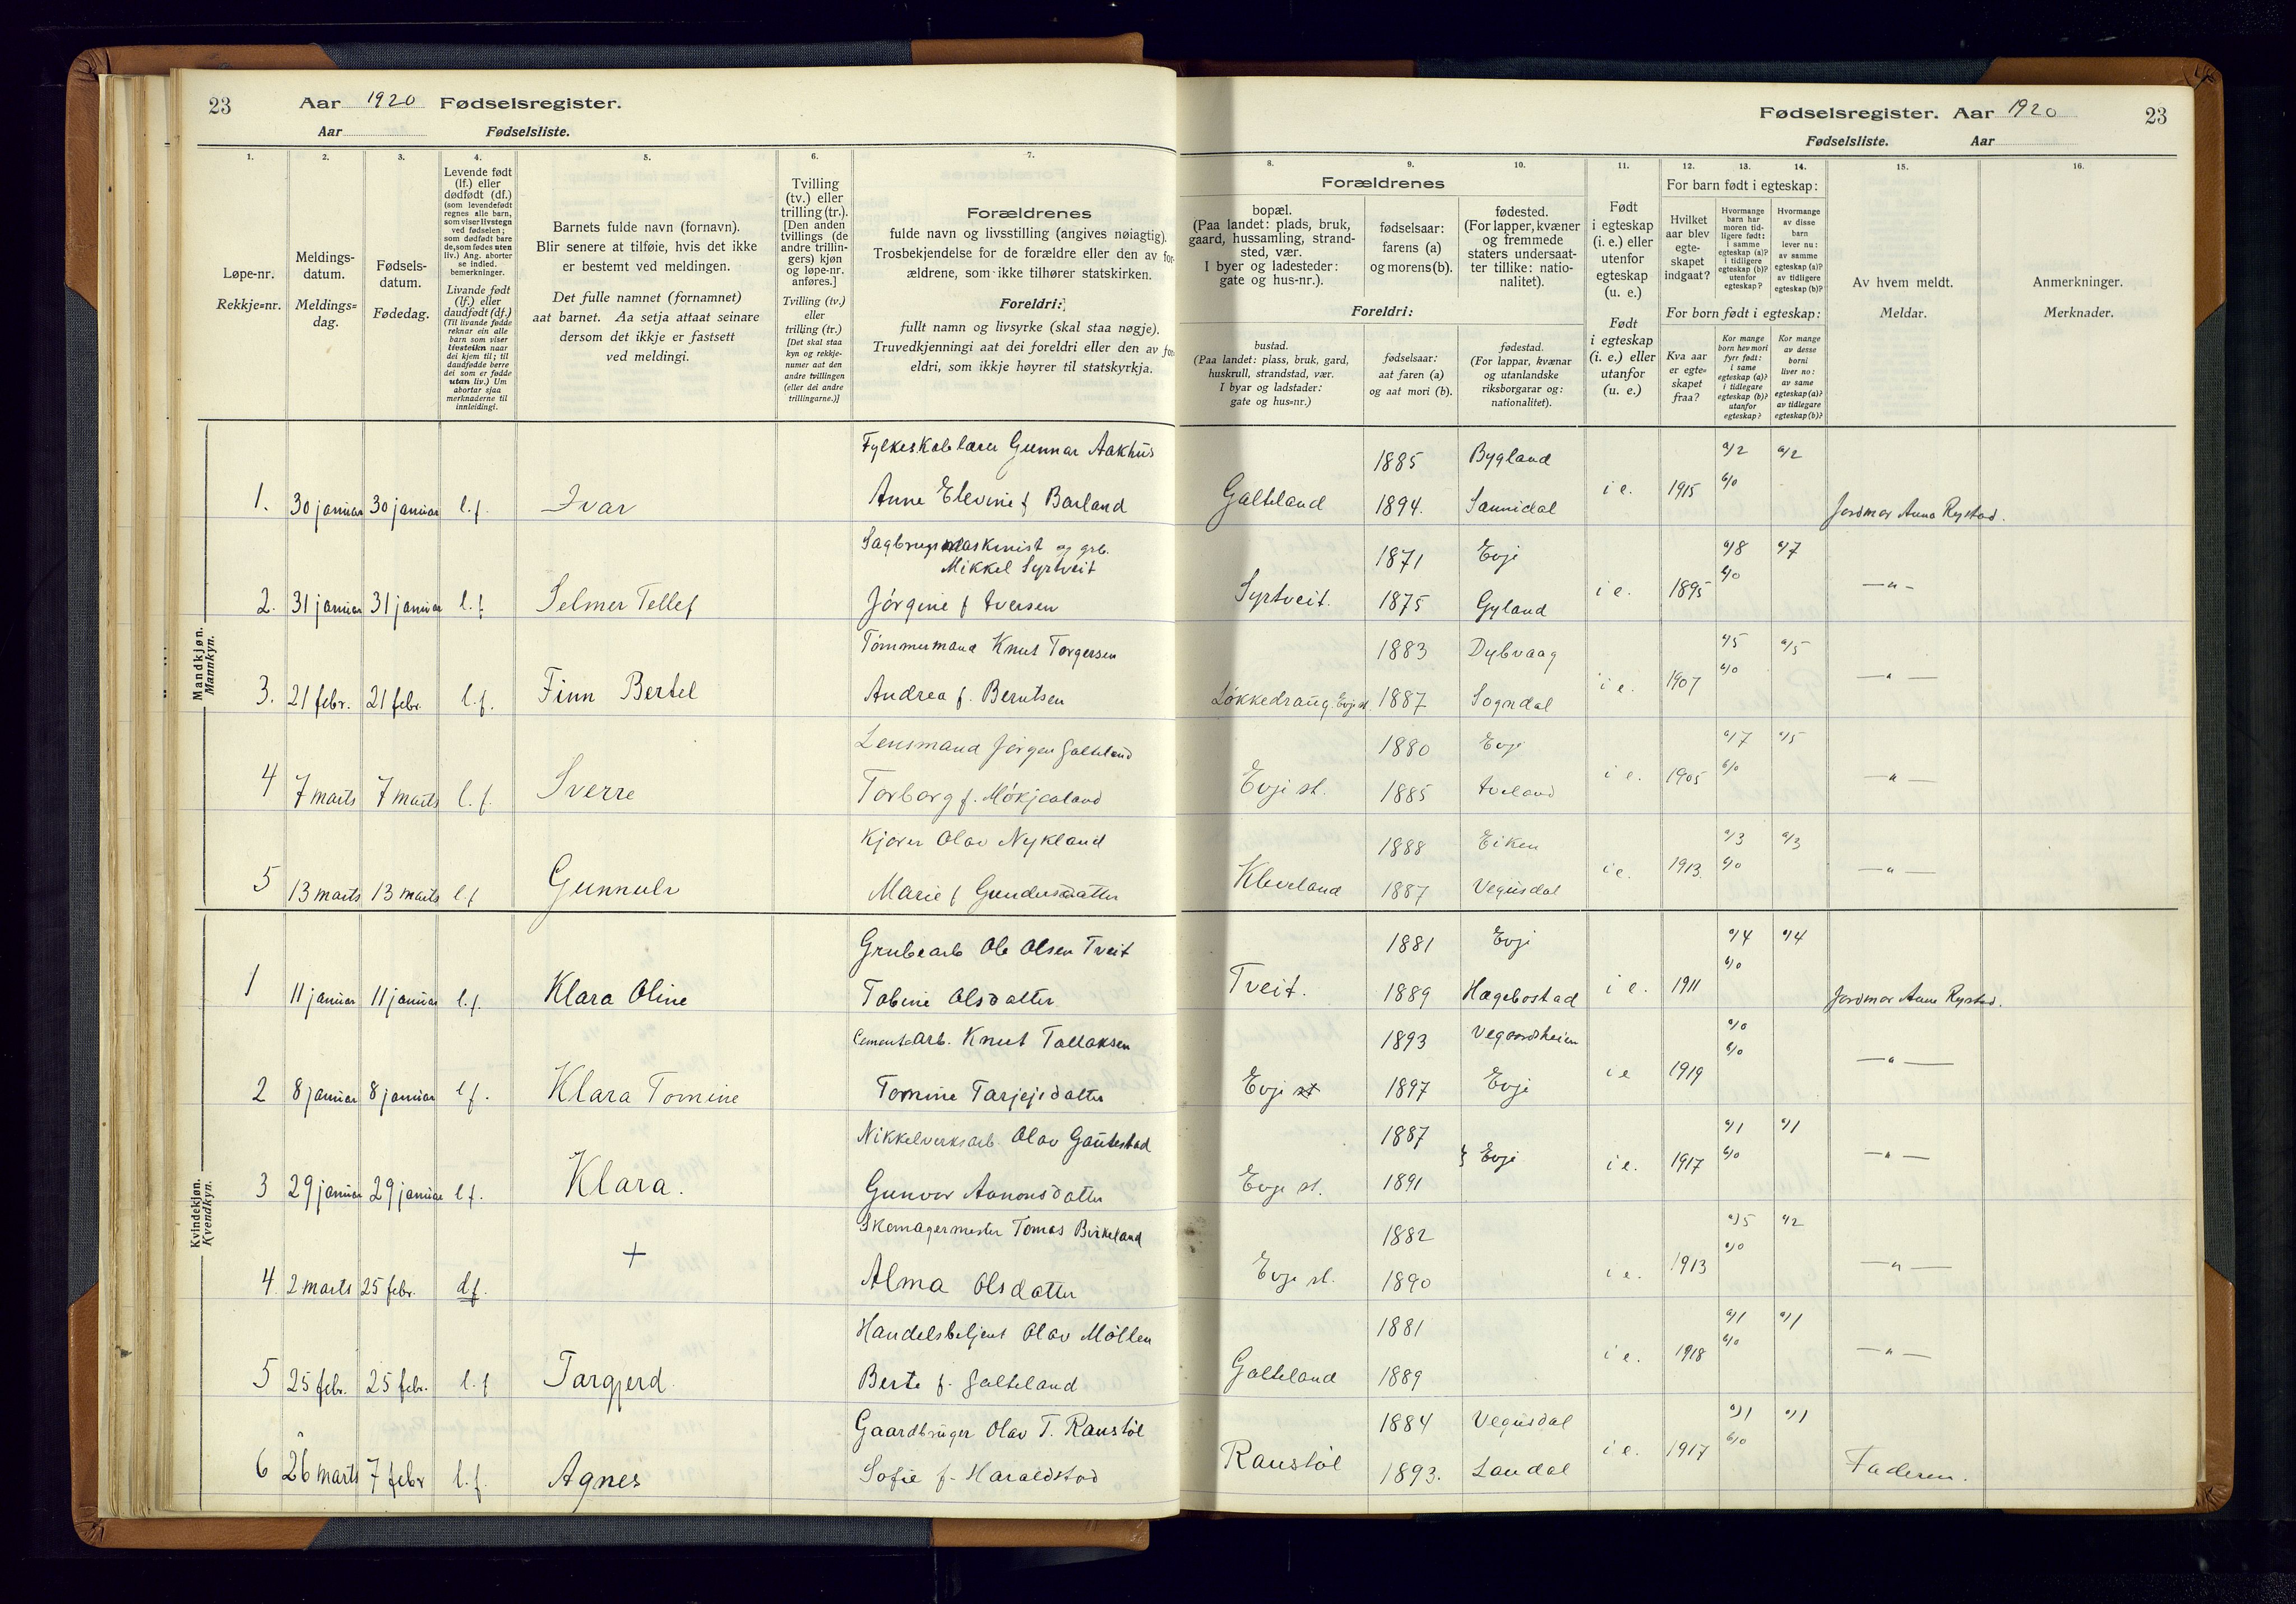 23 Aar 1920 Fødselsregister.
Aar Fødselsliste.
1.
2.
3.
4.
5.
6.
7.
Løpe-nr.
Rekkje-nr.
Meldings-
datum.
Meldings-
dag.
Fødsels-
datum.
Fødedag.
Levende født
(lf.) eller
dødfødt (df.)
(som levendefødt
regnes alle barn,
som viser livstegn
ved fødselen;
som dødfødt bare
de, som fødes uten
liv.) Ang. aborter
se indled.
bemerkninger.
Livande født
(lf.) eller
daudfødt (df.)
(Til livande fødde
reknar ein alle
barn som viser
livsteikn naar
dei kjem til; til
daudfødde berre
dei som er fødde
utan liv.) Um
abortar sjaa
merknaderne til
innleidingi.
Barnets fulde navn (fornavn).
Blir senere at tilføie, hvis det ikke
er bestemt ved meldingen.
Det fulle namnet (fornamnet)
aat barnet. Aa setja attaat seinare
dersom det ikkje er fastsett
ved meldingi.
Tvilling
(tv.) eller
trilling (tr.).
[Den anden
tvillings (de
andre trillin-
gers) kjøn
og løpe-nr.
anføres.]
Tvilling (tv.)
eller
trilling (tr.)
[Det skal staa
kyn og rekkje-
numer aat den
andre tvillingen
(eller dei andre
trillingarne.)]
Forældrenes
fulde navn og livsstilling (angives nøiagtig).
Trosbekjendelse for de forældre eller den av for-
ældrene, som ikke tilhører statskirken.
Foreldri:
fullt namn og livsyrke (skal staa nøgje).
Truvedkjenningi aat dei foreldri eller den av for-
eldri, som ikkje høyrer til statskyrkja.
Mandkjøn.
Mannkyn.
Fylkeskolelærer Gunnar Aakhus
1. 30 januar 30 januar l.f. Ivar Anne Elevine f Barland
Sagbrugsmaskinist og grb.
Mikkel Syrtveit
2. 31 januar 31 januar l.f. Selmer Tellef Jørgine f Iversen
Tømmermand Knut Torgersen
3. 21 febr. 21 febr. l.f. Finn Bertel Andrea f. Berntsen
Lensmand Jørgen Galteland
4 7 marts 7 marts l.f. Sverre Torborg f. Mökjaland
Olav Nykland
5 13 marts 13 marts l.f Gunnulv Marie f Gundersdatter
Kvindekjøn.
Kvendkyn.
Grubearb Ole Olsen Tveit
1 11 januar 11 januar l.f. Klara Oline Tobine Olsdatter
Cementarb. Knut Tallaksen
2 8 januar 8 januar l f. Klara Tomine Tomine Tarjeisdatter
Nikkelverksarb. Olav Gautestad
3 29 januar 29 januar l f. Klara. Gunvor Aanonsdatter
Skomagermester Tomas Birkeland
+
4. 2 marts 25 febr. df. Alma Olsdatter
Handelsbetjent Olav Möllen
5 25 febr. 25 febr. l.f Targjerd. Berte f. Galteland
Gaardbruger Olav T. Raustöl
6 26 marts 7 febr l.f. Agnes Sofie f. Haraldstad
Fødselsregister. Aar 1920 23
Fødselsliste. Aar
8.
9.
10.
11.
12.
13.
14.
15.
16.
Forældrenes
bopæl.
(Paa landet: plads, bruk,
gaard, hussamling, strand-
sted, vær.
I byer og ladesteder:
gate og hus-nr.).
fødselsaar:
farens (a)
og morens (b).
fødested.
(For lapper, kvæner
og fremmede
staters undersaat-
ter tillike: natio-
nalitet).
Foreldri:
bustad.
(Paa landet: plass, bruk, gard,
huskrull, strandstad, vær.
I byar og ladstader:
gate og hus=nr.)
fødselsaar:
aat faren (a)
og aat mori (b).
fødestad.
(For lappar, kvænar
og utanlandske
riksborgarar og:
nationalitet).
Født
i egteskap
(i. e.) eller
utenfor
egteskap
(u. e.)
Født
i egteskap
(i. e.) eller
utanfor
(u. e.)
For barn født i egteskap:
Hvilket
aar blev
egte-
skapet
indgaat?
Hvormange
barn har
moren tid-
ligere født:
i samme
egteskap (a)?
i tidligere
egteskap (b)?
utenfor
egteskap?
Hvormange
av disse
barn
lever nu:
av samme
egteskap (a)?
av tidligere
egteskap (b)?
For born født i egteskap:
Kva aar
er egte-
skapet
fraa?
Kor mange
born hev mori
fyrr født:
i same
egteskap (a)?
i tidlegare
egteskap (b)?
utanfor
egteskap?
Kor mange
av desse
borni
liver no:
av same
egteskap (a)?
av tidlegare
egteskap (b)?
Av hvem meldt.
Meldar.
Anmerkninger.
Merknader.
1885 Bygland a/2 a/2
Galteland 1894. Sannidal i e. 1915 b/0 Jordmor Anna Rystad.
1871 Evje a/8 a/7
Syrtveit. 1875 Gyland i e. 1895 b/0 — " —
1883 Dybvaag a/5 a/5
Evje st. 1887 Sogndal i e. 1907 b/0 — " —
1880 Evje a/7 a/5
Evje st. 1885 Iveland i e. 1905 b/0 — " —
1888 Eiken a/3 a/3
1887 Vegusdal i e. 1913. b/0 — " —
1881 Evje a/4 a/4
Tveit. 1889 Hægebostad i e. 1911 b/0 Jordmor Anna Rystad.
1893 Vegaardsheien a/0
Evje st 1897 Evje i e 1919 b/0 — " —
1887 a/1 a/1
Evje st. 1891 } Evje i e. 1917 b/0 — " —
1882 a/5 a/2
Evje st. 1890 i e. 1913 b/0 — " —
1881 a/1 a/1
Galteland 1889 i e. 1918 b/0 — " —
1884 Vegusdal a/1 a/1
Raustöl 1893. Laudal i e. 1917 b/0 Faderen.